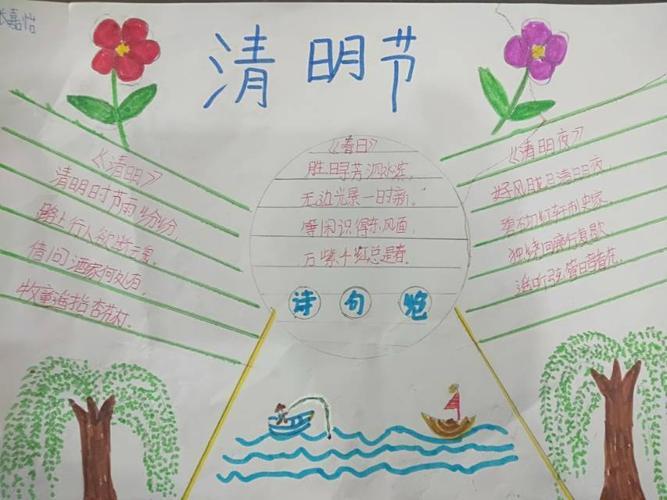 张嘉怡
清明节
《清明》
清明时节雨纷纷,
路上行人欲断魂
借问酒家何处有,
牧童遥指杏花村.
《春日》
胜日寻芳泗水滨,
无边光景一时新,
等闲识得东风面,
万紫千红总是春.
诗句
《清明夜》
好风胧月清明夜,
独绕回廊行复歇
遥听弦管暗看花.